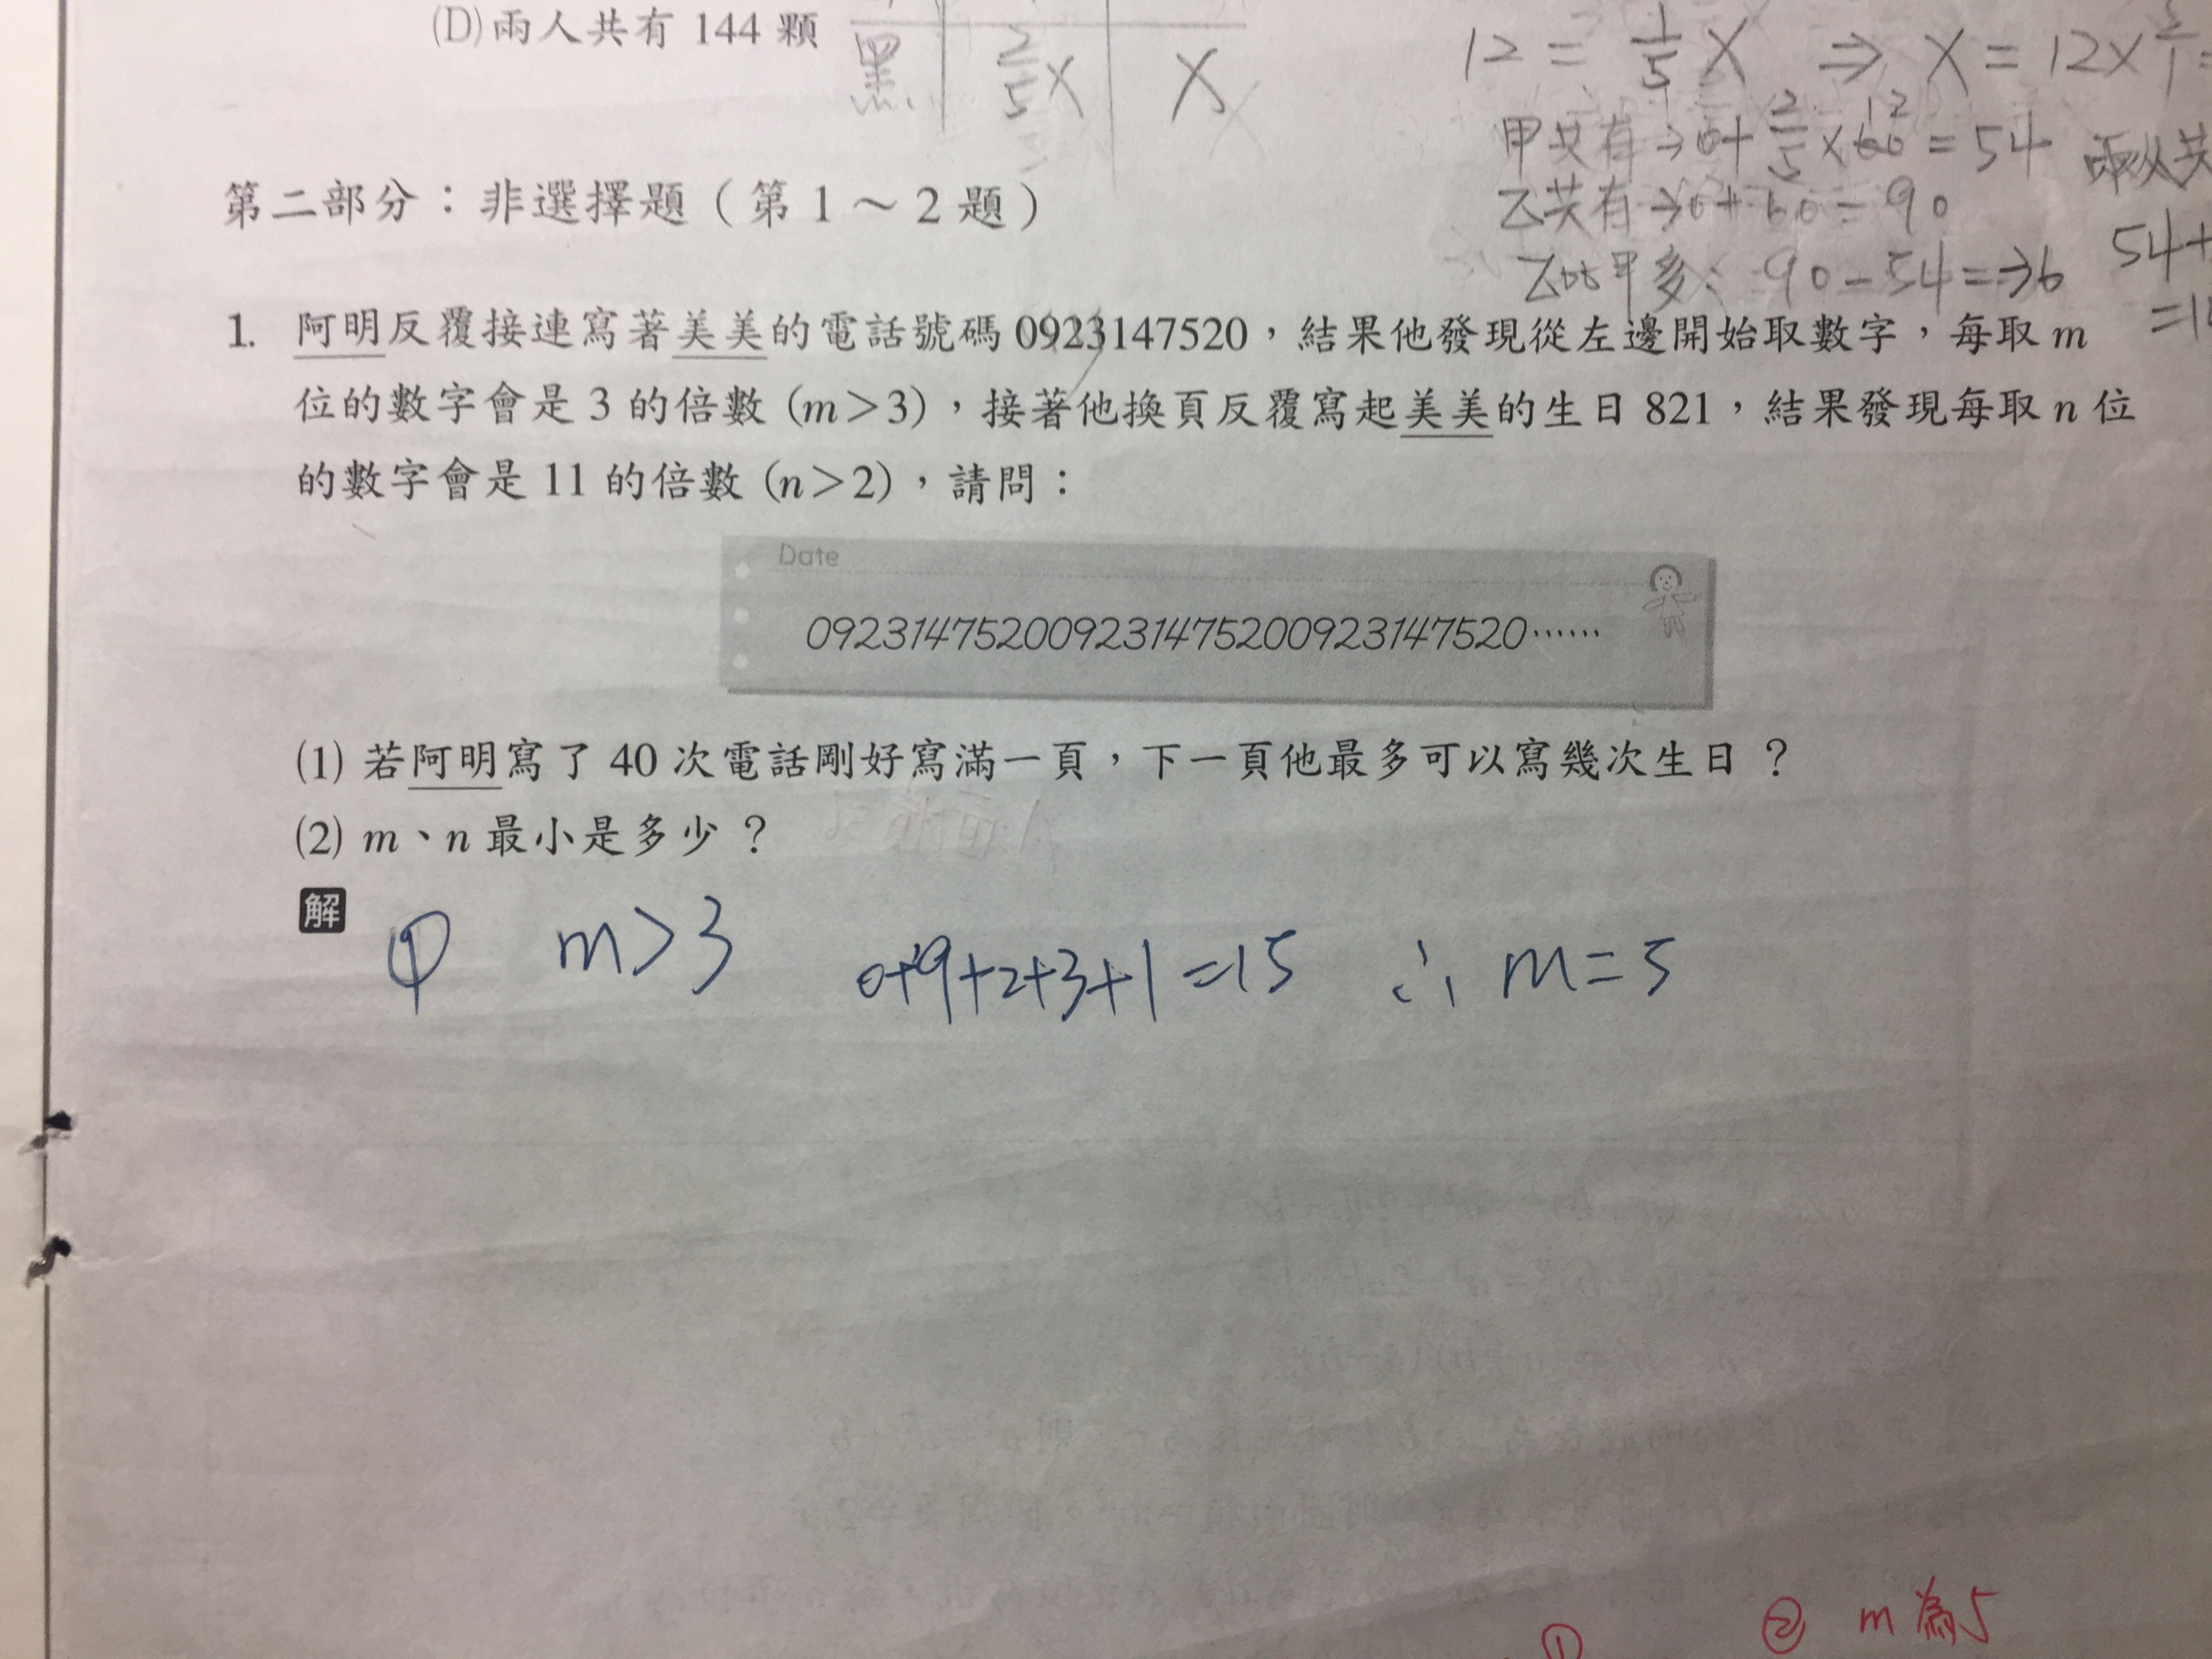 (D)兩人共有 144 顆
黑 2/5 X X
12 = 1/5 X ⇒ X = 12×
甲共有 30+2/5×60 12=54
乙共有 30+60=90
乙比甲多: 90-54=36
兩人共
54+
第二部分：非選擇題（第 1～2 題）
1. 阿明反覆接連寫著美美的電話號碼 0923147520，結果他發現從左邊開始取數字，每取 m
位的數字會是 3 的倍數 (m＞3)，接著他換頁反覆寫起美美的生日 821，結果發現每取 n 位
的數字會是 11 的倍數 (n＞2)，請問：
Date
092314752009231475200923147520……
(1) 若阿明寫了 40 次電話剛好寫滿一頁，下一頁他最多可以寫幾次生日？
(2) m、n 最小是多少？
解
① m>3 0+9+2+3+1=15 ∴ m=5
① ② m為5